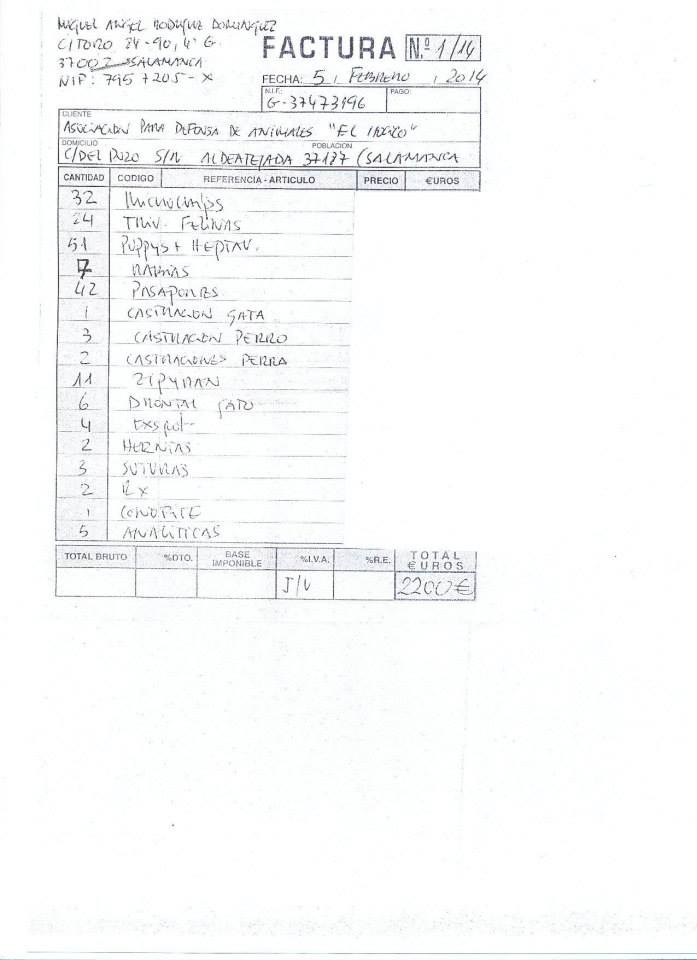 MIGUEL ANGEL RODRIGUEZ DOMINGUEZ
C/TORO 84-90, 4º G
37002 SALAMANCA
NIF: 7957205-X
FACTURA N.º 1/14
FECHA: 5, FEBRERO, 2014
N.I.F.: G-37473196 PAGO:
CLIENTE
ASOCIACION PARA DEFENSA DE ANIMALES "EL
DOMICILIO POBLACIÓN
C/DEL POZO S/N ALDEATEJADA 37187 (SALAMANCA
CANTIDAD CODIGO REFERENCIA - ARTICULO PRECIO €UROS
32 MICROCHIPS
24 TRIV. FELINAS
51 PUPPYS + HEPTAV.
7 RABIAS
42 PASAPORTES
1 CASTRACION GATA
3 CASTRACION PERRO
2 CASTRACIONES PERRA
11 ZIPYRAN
6 DRONTAL GATO
4 EXSPOT
2 HERNIAS
3 SUTURAS
2 RX
1
5 ANALITICAS
TOTAL BRUTO %DTO. BASE IMPONIBLE %I.V.A. %R.E. TOTAL €UROS
2200 €